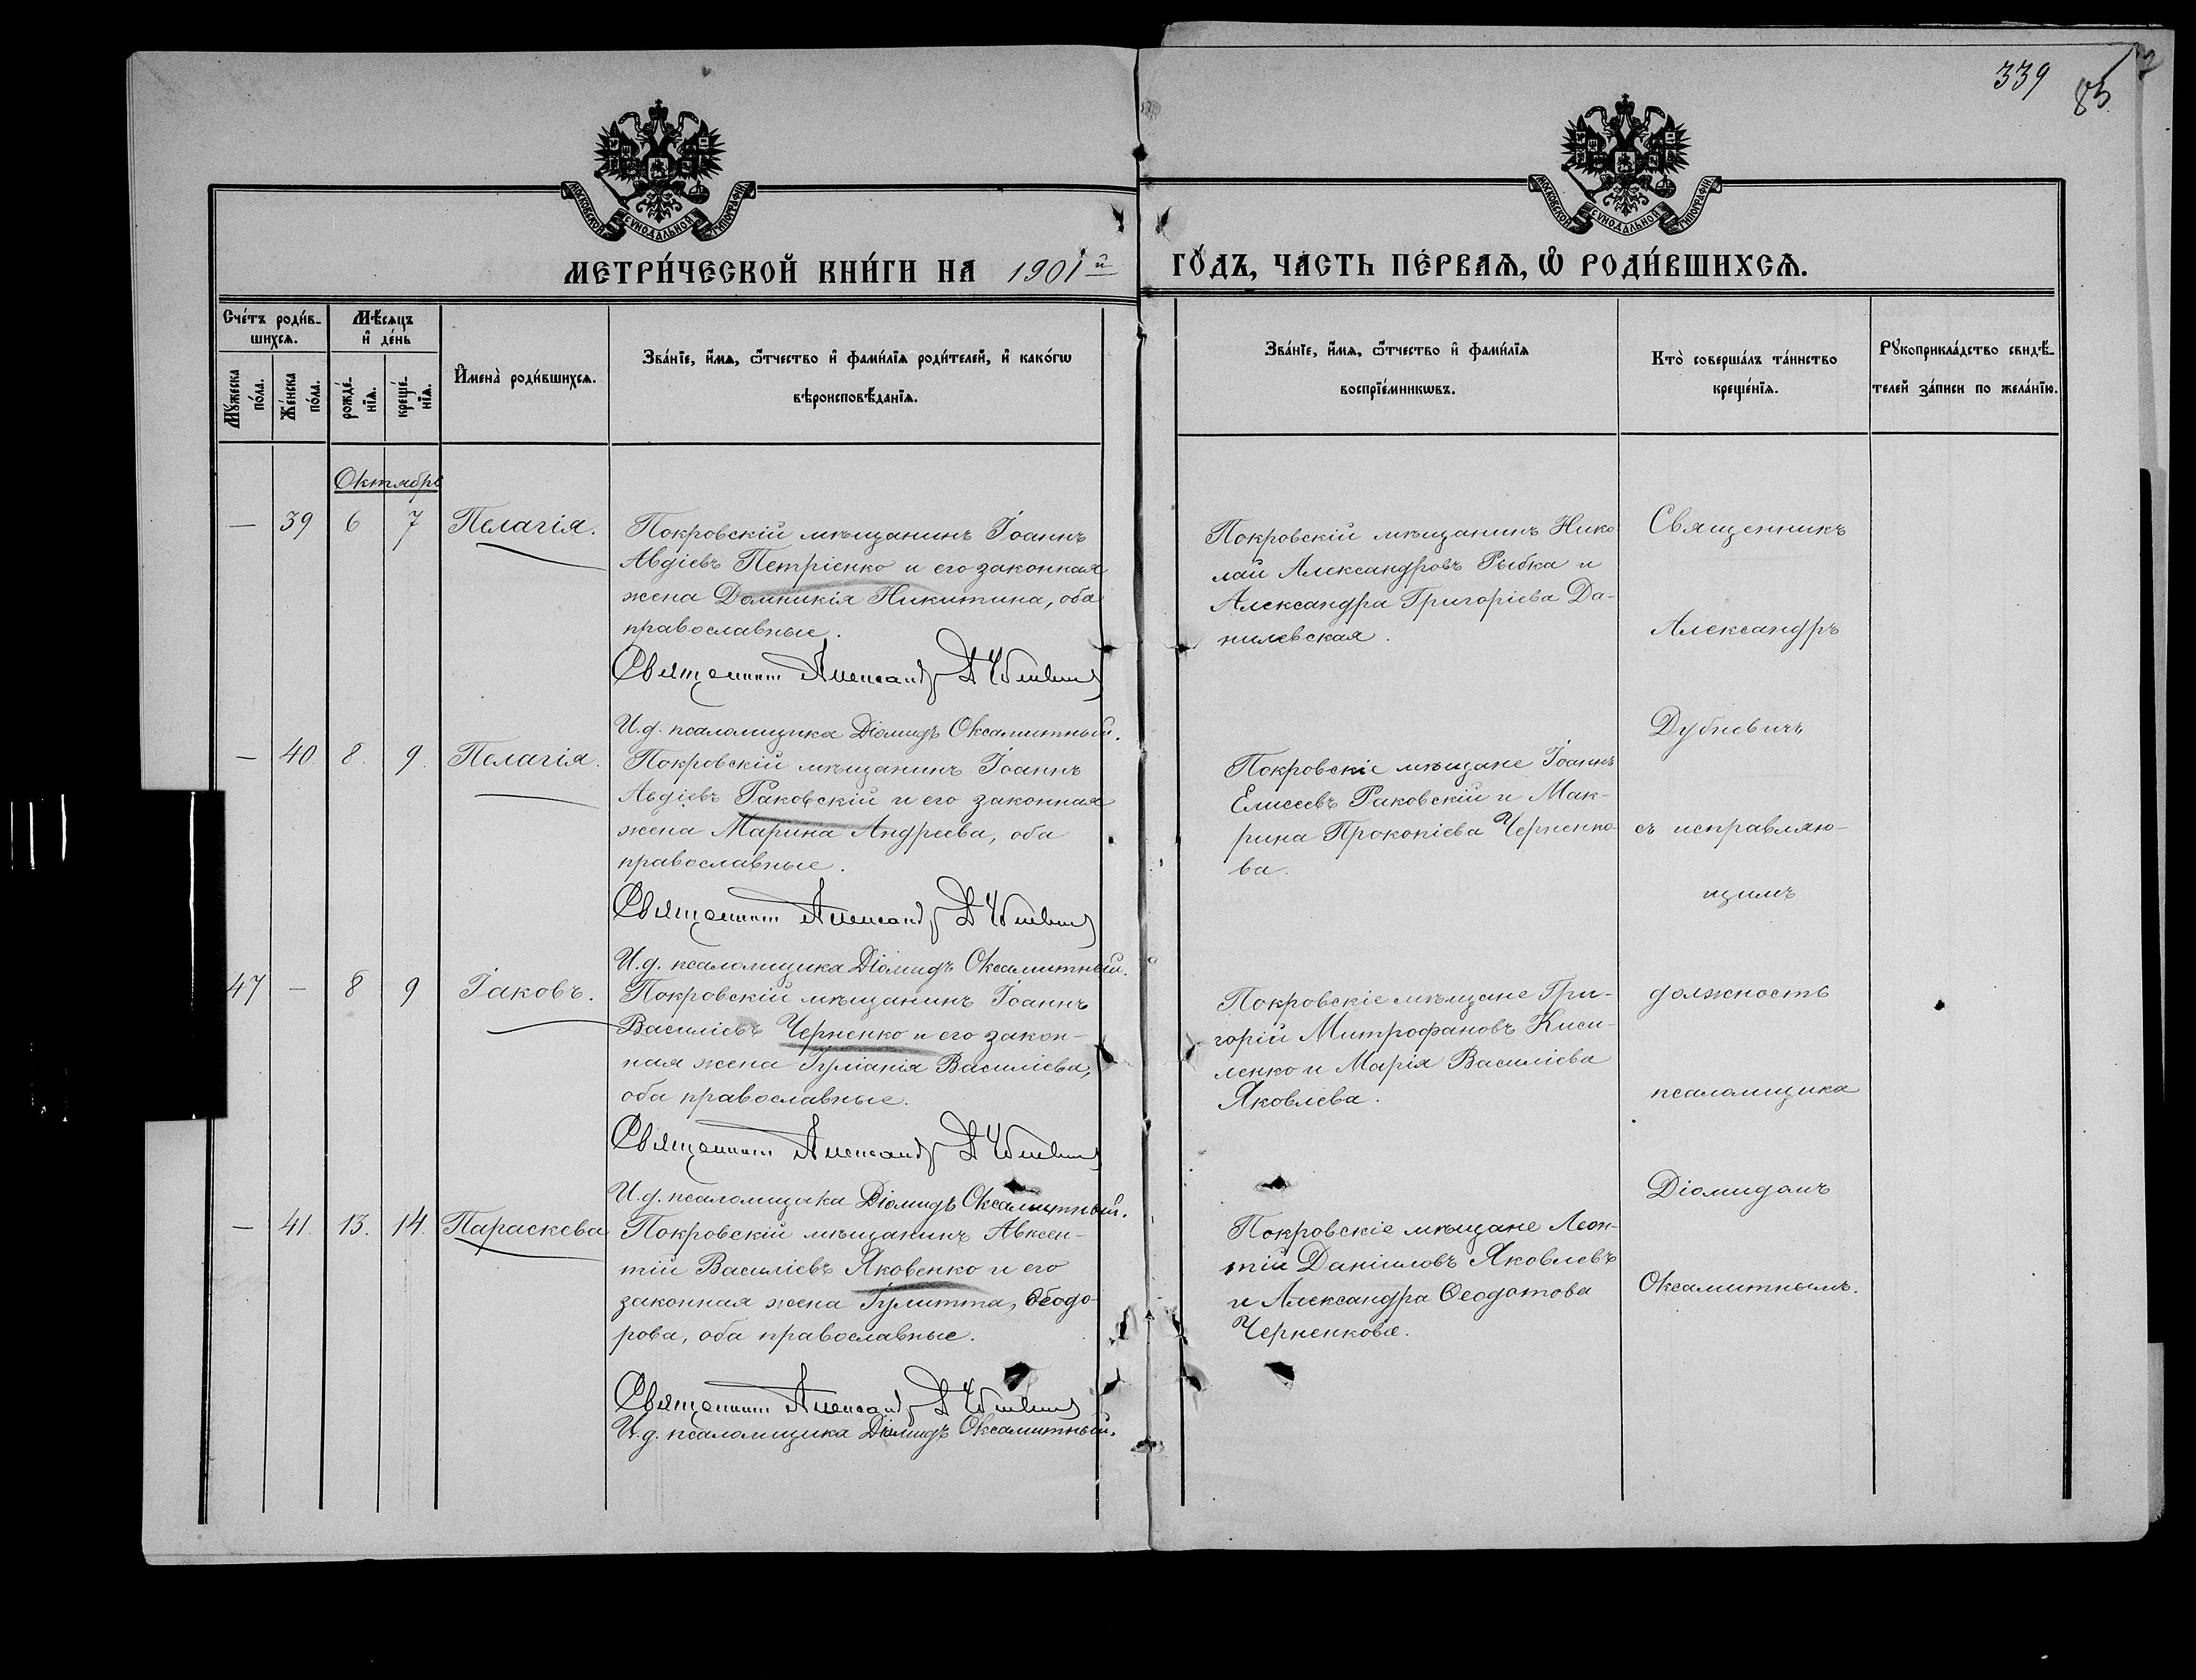 339
85
МОСКОВСКОЙ СУНОДАЛЬНОЙ ТИПОГРАФІИ.
МОСКОВСКОЙ СУНОДАЛЬНОЙ ТИПОГРАФІИ.
МЕТРИ́ЧЕСКОЙ КНИ́ГИ НА 1901й
ГО́ДЪ, ЧА́СТЬ ПЕ́РВАЯ, Ѡ҆ РОДИ́ВШИХСЯ.
Сче́тъ роди́в-
шихсѧ.
Мꙋ́жеска по́ла.
Же́нска по́ла.
Мѣ́сѧцъ
и҆ де́нь
рожде́-
нїѧ.
креще́-
нїѧ.
И҆мена̀ роди́вшихсѧ.
Зва́нїе, и҆́мѧ, ѻ҆́тчество и҆ фами́лїѧ роди́телей, и҆ како́гѡ
вѣроисповѣ́данїѧ.
Зва́нїе, и҆́мѧ, ѻ҆́тчество и҆ фами́лїѧ
воспрїе́мникѡвъ.
Кто̀ соверша́лъ та́инство
креще́нїѧ.
Рꙋкоприкла́дство свидѣ́-
телей за́писи по жела́нїю.
Октябрь
— 39 6 7 Пелагія.
Покровскій мѣщанинъ Іоаннъ
Авдіевъ Петріенко и его законная
жена Домникія Никитина, оба
православные.
Священникъ Александръ Дубневичъ
И.д. псаломщика Діомидъ Оксамитный.
Покровскій мѣщанинъ Нико
лай Александровъ Рыбка и
Александра Григоріева Да-
нилевская.
— 40. 8. 9. Пелагія.
Покровскій мѣщанинъ Іоаннъ
Авдіевъ Раковскій и его законная
жена Марина Андреева, оба
православные.
Священникъ Александръ Дубневичъ
И.д. псаломщика Діомидъ Оксамитный.
Покровскіе мѣщане Іоаннъ
Елисеевъ Раковскій и Мак-
рина Прокопіева Черненко-
ва.
47 — 8 9 Іаковъ.
Покровскій мѣщанинъ Іоаннъ
Василіевъ Черненко и его закон-
ная жена Іуліанія Василіева,
оба православные.
Священникъ Александръ Дубневичъ
И.д. псаломщика Діомидъ Оксамитный.
Покровскіе мѣщане Гри-
горій Митрофановъ Киси-
ленко и Марія Василіева
Яковлева.
— 41. 13. 14. Параскева
Покровскій мѣщанинъ Авксен-
тій Василіевъ Яковенко и его
законная жена Іулитта, Ѳеодо-
рова, оба православные.
Священникъ Александръ Дубневичъ
И.д. псаломщика Діомидъ Оксамитный.
Покровскіе мѣщане Леон-
тій Даніиловъ Яковлевъ
и Александра Ѳеодотова
Черненкова.
Священникъ
Александръ
Дубневичъ
съ исправляю-
щимъ
должность
псаломщика
Діомидомъ
Оксамитнымъ.